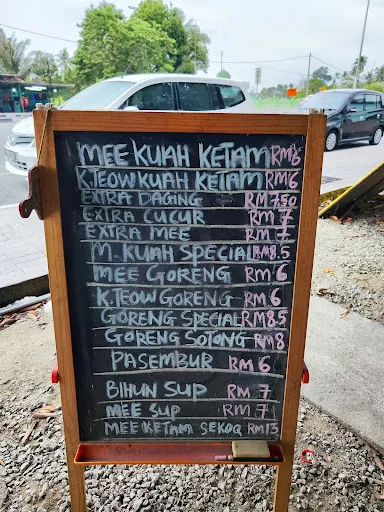 MEE KUAH KETAM RM6
K.TEOW KUAH KETAM RM6
EXTRA DAGING RM 7.50
EXTRA CUCUR RM 7
EXTRA MEE RM 7
M. KUAH SPECIAL RM8.5
MEE GORENG RM 6
K.TEOW GORENG RM 6
GORENG SPECIAL RM8.5
GORENG SOTONG RM8
PASEMBUR RM 6
BIHUN SUP RM 7
MEE SUP RM 7
MEE KETAM SEKOR RM13